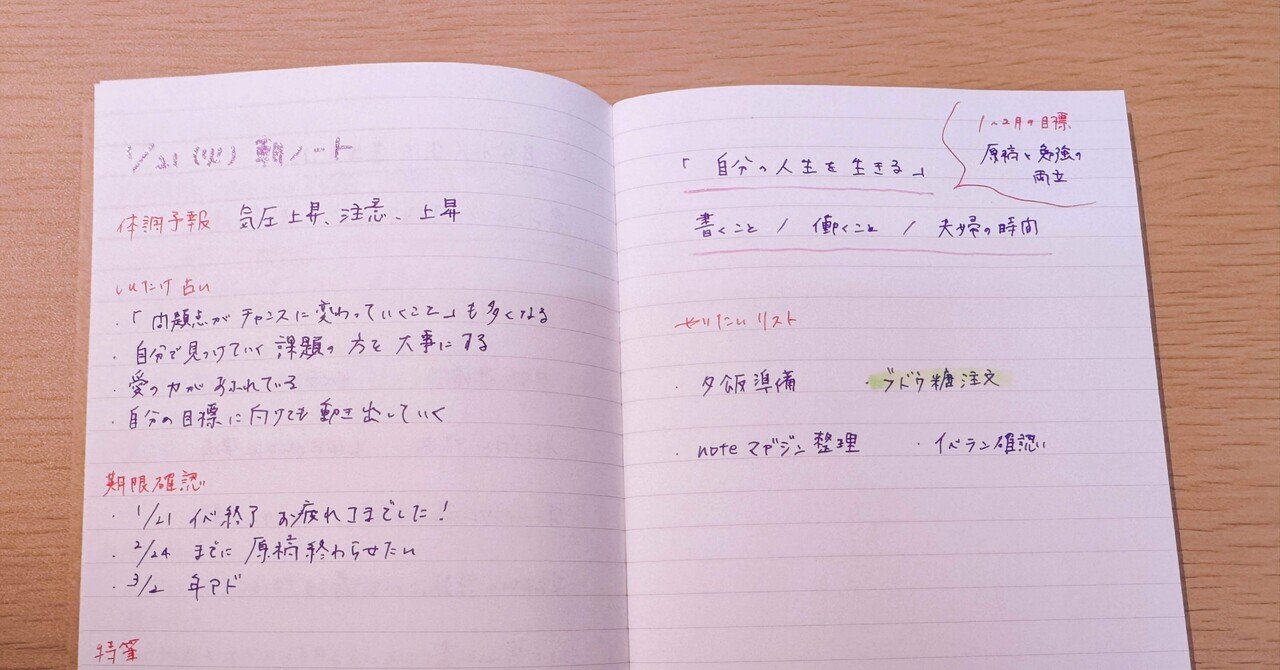 1/21(火) 朝ノート
体調予報 気圧上昇、注意、上昇
しいたけ占い
・「問題点がチャンスに変わっていくこと」も多くなる
・自分で見つけていく課題の方を大事にする
・愛の力があふれている
・自分の目標に向けても動き出していく
期限確認
・1/21 イベ終了 お疲れさまでした!
・2/24 までに原稿終わらせたい
・3/2 年アド
特筆
1〜2月の目標
原稿と勉強の
両立
「自分の人生を生きる」
書くこと / 働くこと / 夫婦の時間
やりたいリスト
・夕飯準備 ・ブドウ糖注文
・noteマガジン整理 ・イベラン確認